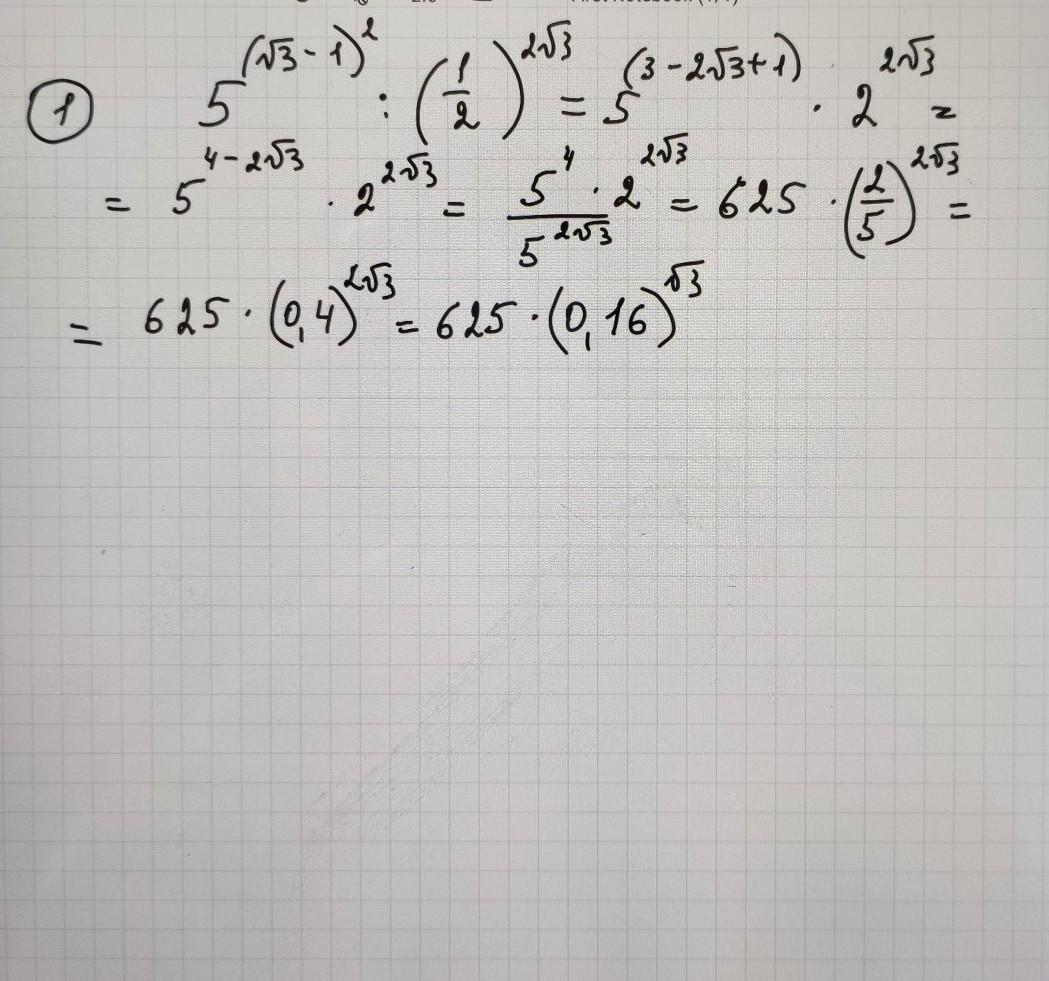 ① 5^{(√3 - 1)^2} : (1/2)^{2√3} = 5^{(3 - 2√3 + 1)} · 2^{2√3} =
= 5^{4 - 2√3} · 2^{2√3} = 5^4 · 2^{2√3} / 5^{2√3} = 625 · (2/5)^{2√3} =
= 625 · (0,4)^{2√3} = 625 · (0,16)^{√3}